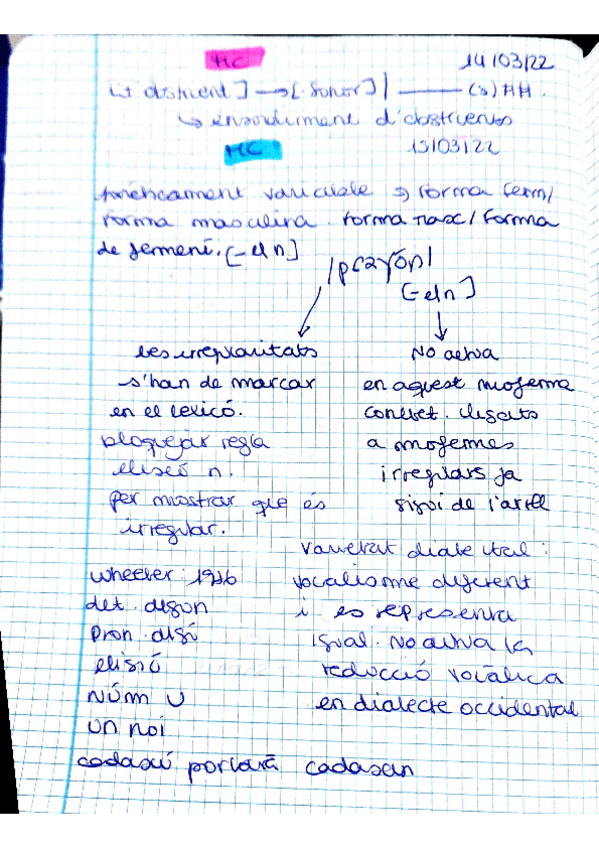 MC 14/03/22
[+ obstruent] → [-sonor] / ___ (s) ##
↳ ensordiment d'obstruents
MC 15/03/22
fonèticament variable → forma fem/
forma masculina. forma masc / forma
de femení. [-el n]
[-el n]
les irregularitats
s'han de marcar
en el lexicó.
bloquejar regla
elisió n.
per mostrar que és
irregular.
No activa
en aquest morfema
concret. lligats
a morfemes
irregulars ja
sigui de l'arrel
varietat dialectal:
vocalisme diferent
i es representa
igual. No activa la
reducció vocàlica
en dialecte occidental
Wheeler
det. algun
pron. algú
elisió
Núm U
un noi
cadascú portarà cadascun